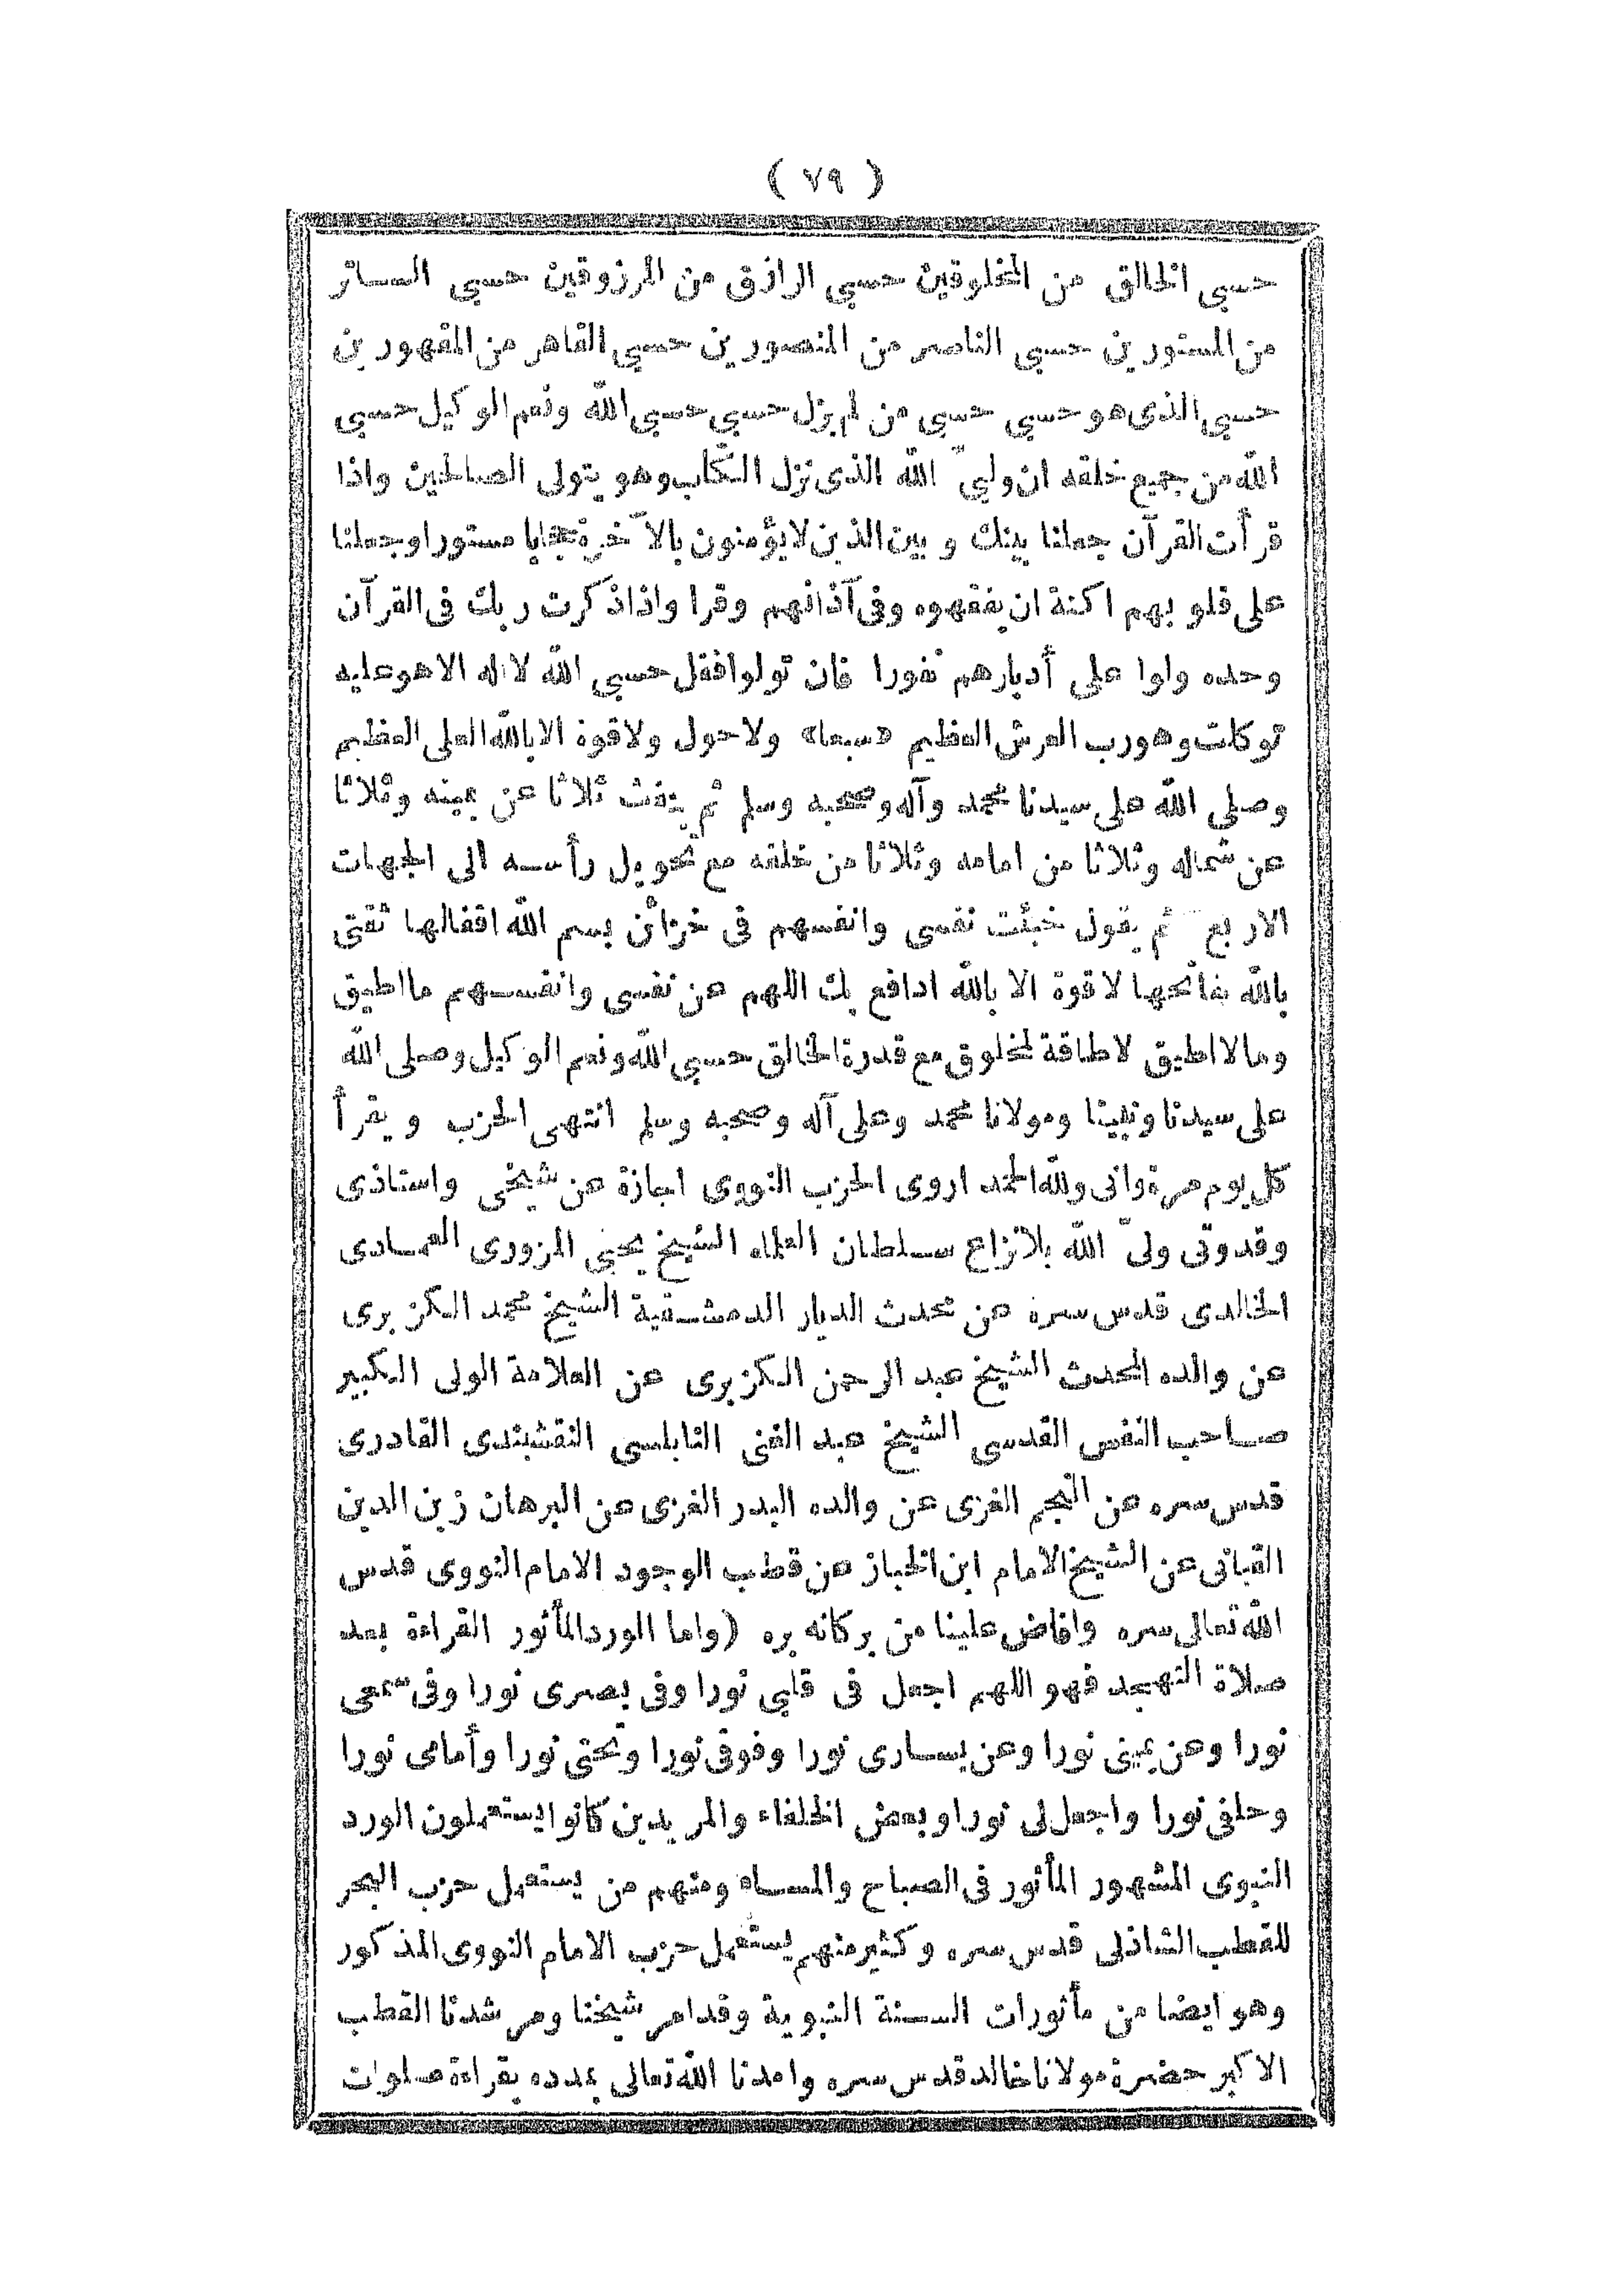 ( ٧٩ )
حسبي الخالق من المخلوقين حسبي الرازق من المرزوقين حسبي الساتر
من المستورين حسبي الناصر من المنصورين حسبي القاهر من المقهورين
حسبي الذى هو حسبي حسبي من لم يزل حسبي حسبي الله ونعم الوكيل حسبي
الله من جميع خلقه ان وليّ الله الذى نزل الكتاب وهو يتولى الصالحين واذا
قرأت القرآن جعلنا بينك وبين الذين لا يؤمنون بالآخرة حجابا مستورا وجعلنا
على قلوبهم اكنة ان يفقهوه وفى آذانهم وقرا واذا ذكرت ربك فى القرآن
وحده ولوا على أدبارهم نفورا فان تولوا فقل حسبي الله لا اله الا هو عليه
توكلت وهو رب العرش العظيم «سبعا» ولا حول ولا قوة الا بالله العلى العظيم
وصلى الله على سيدنا محمد وآله وصحبه وسلم ثم ينفث ثلاثا عن يمينه وثلاثا
عن شماله وثلاثا من امامه وثلاثا من خلفه مع تحويل رأسه الى الجهات
الاربع ثم يقول خبئت نفسى وانفسهم فى خزائن بسم الله اقفالها ثقتى
بالله مفاتحها لا قوة الا بالله ادافع بك اللهم عن نفسى وانفسهم ما اطيق
وما لا اطيق لا طاقة لمخلوق مع قدرة الخالق حسبي الله ونعم الوكيل وصلى الله
على سيدنا ونبينا ومولانا محمد وعلى آله وصحبه وسلم انتهى الحزب ويقرأ
كل يوم مرة وانى ولله الحمد اروى الحزب النووى اجازة عن شيخى واستاذى
وقدوتى ولىّ الله بلا نزاع سلطان العلماء الشيخ يحيى المزورى العمادى
الخالدى قدس سره عن محدث الديار الدمشقية الشيخ محمد الكزبرى
عن والده المحدث الشيخ عبد الرحمن الكزبرى عن العلامة الولى الكبير
صاحب النفس القدسى الشيخ عبد الغنى النابلسى النقشبندى القادرى
قدس سره عن النجم الغزى عن والده البدر الغزى عن البرهان زين الدين
القبانى عن الشيخ الامام ابن الخباز عن قطب الوجود الامام النووى قدس
الله تعالى سره وافاض علينا من بركاته بره (واما الورد المأثور القراءة بعد
صلاة التهجد فهو اللهم اجعل فى قلبي نورا وفى بصرى نورا وفى سمعى
نورا وعن يمينى نورا وعن يسارى نورا وفوقى نورا وتحتى نورا وأمامى نورا
وخلفى نورا واجعل لى نورا وبعض الخلفاء والمريدين كانوا يستعملون الورد
النبوى المشهور المأثور فى الصباح والمساء ومنهم من يستعمل حزب البحر
للقطب الشاذلى قدس سره وكثير منهم يستعمل حزب الامام النووى المذكور
وهو ايضا من مأثورات السنة النبوية وقد امر شيخنا ومرشدنا القطب
الاكبر حضرة مولانا خالد قدس سره وامدنا الله تعالى بمدده بقراءة صلوات